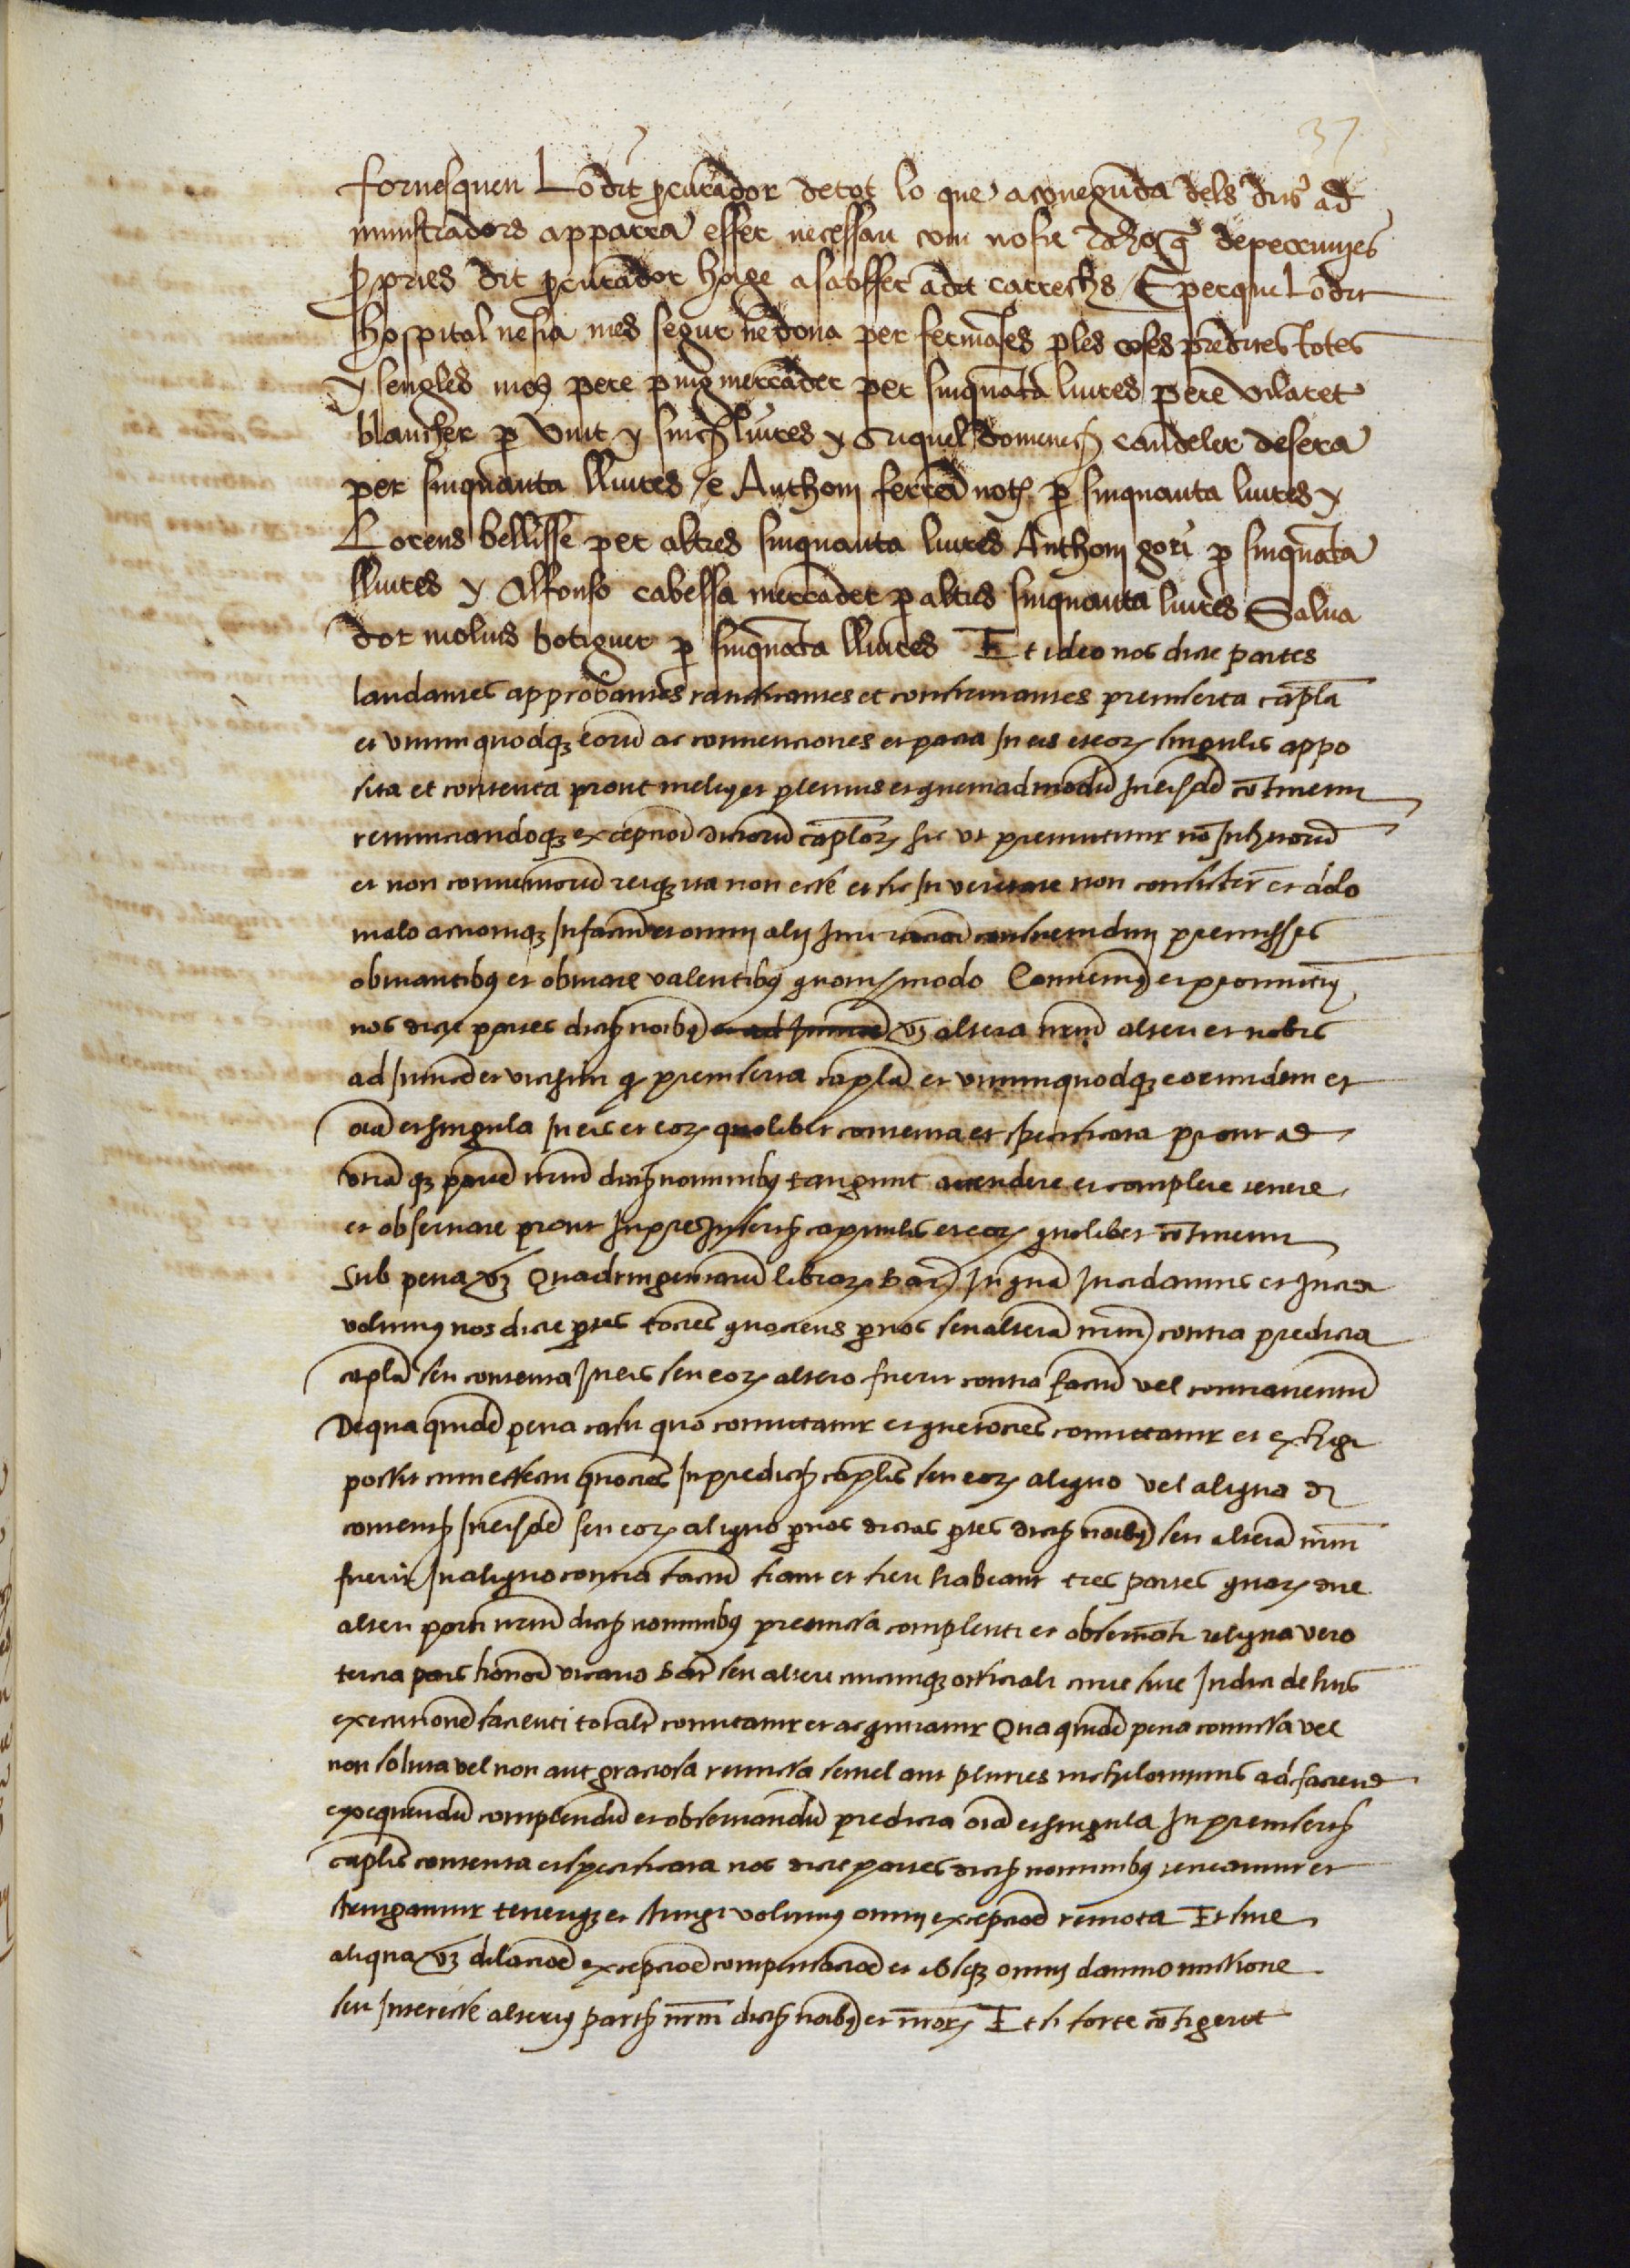 37
fornesquen Lo dit pcurador de tot lo que a coneguda dels dits ad
ministradors apparra esser necessari com no sie de pecunyes
ppries dit pcurador hage a sabsfer a dit carrechs E perque Lo dit
hospital ne sia mes segur ne dona per fermases p les coses predites totes
y sengles mos pere puig mercader per sinquata liures pere vilaret
blancher p vint y sinch liures y Suquel domenech candeler de sera
per sinquanta lliures e Anthoni ferrer not p sinquanta liures y
Lorens bellisse per altres sinquanta liures Anthoni gori p sinquata
lliures y Alfonso cabessa mercader p altres sinquanta liures Salua
dor molins botiguer p sinquata lliures Et ideo nos dicte partes
laudantes approbantes ratificantes et confirmantes preinserta capla
et vnumquodqz eorum ac convenciones et pacta In eis et eorum singulis appo
sita et contenta prout melius et plenius et quemadmodum In eisdem cotinentur
renunciandoqz excepcioni dictorum caplorum sic vt premittitur no Inhitorum
et non conventorum reiqz ita non esse et sic In veritate non consistere et dolo
malo actioniqz In factum et omnij alij Iuri racioni et consuetudini premissis
obviantibus et obviare valentibus quouismodo Convenimus et promittimus
nos dicte partes dictis noibus vz altera nrum alteri et nobis
ad Inuicem et vicissim q preinserta capla et vnumquodqz eorumdem et
oia et singula In eis et eorum quolibet contenta et specificata prout ad
vtraqz partem nrum dictis nominibus tangunt attendere et complere tenere
et observare prout In preinsertis capitulis et eorum quolibet cotinentur
Sub pena vz Quadringentarum librarum Barn In qua Incidamus et Incidi
volumus nos dicte ptes tociens quociens p nos seu alteram nrum contra predicta
capla seu contenta In eis seu eorum altero fuerit contra factum vel contraventum
De qua quidem pena casu quo comittatur et quetociens comittatur et exhigi
possit cum effectu quociens In predictis caplis seu eorum aliquo vel aliqua de
contentis In eisdem seu eorum aliquo p nos dictas ptes dictis noibus seu alteram nrum
fuerit In aliquo contra factum fiant et fieri habeant tres partes quarum due
alteri parti nrum dictis nominibus premissa complenti et observanti reliqua vero
tercia pars honor vicario Barn seu alteri cuicumqz officiali curie sive Iudici de hiis
execucionem facienti totaliter comitatur et acquiratur Qua quidem pena comissa vel
non soluta vel non aut graciosa remissa semel aut pluries nichilominus ad faciend
exequendum complendum et observandum predicta oia et singula In preinsertis
caplis contenta et specificata nos dicte partes dictis nominibus teneamur et
stringamur teneriqz et stringi volumus omni excepcione remota Et sine
aliqua vz dilacione excepcione compensacione et absqz omni damno missione
seu Interesse alterius partis nrum dictis noibus et nrorum Et si forte cotigerit